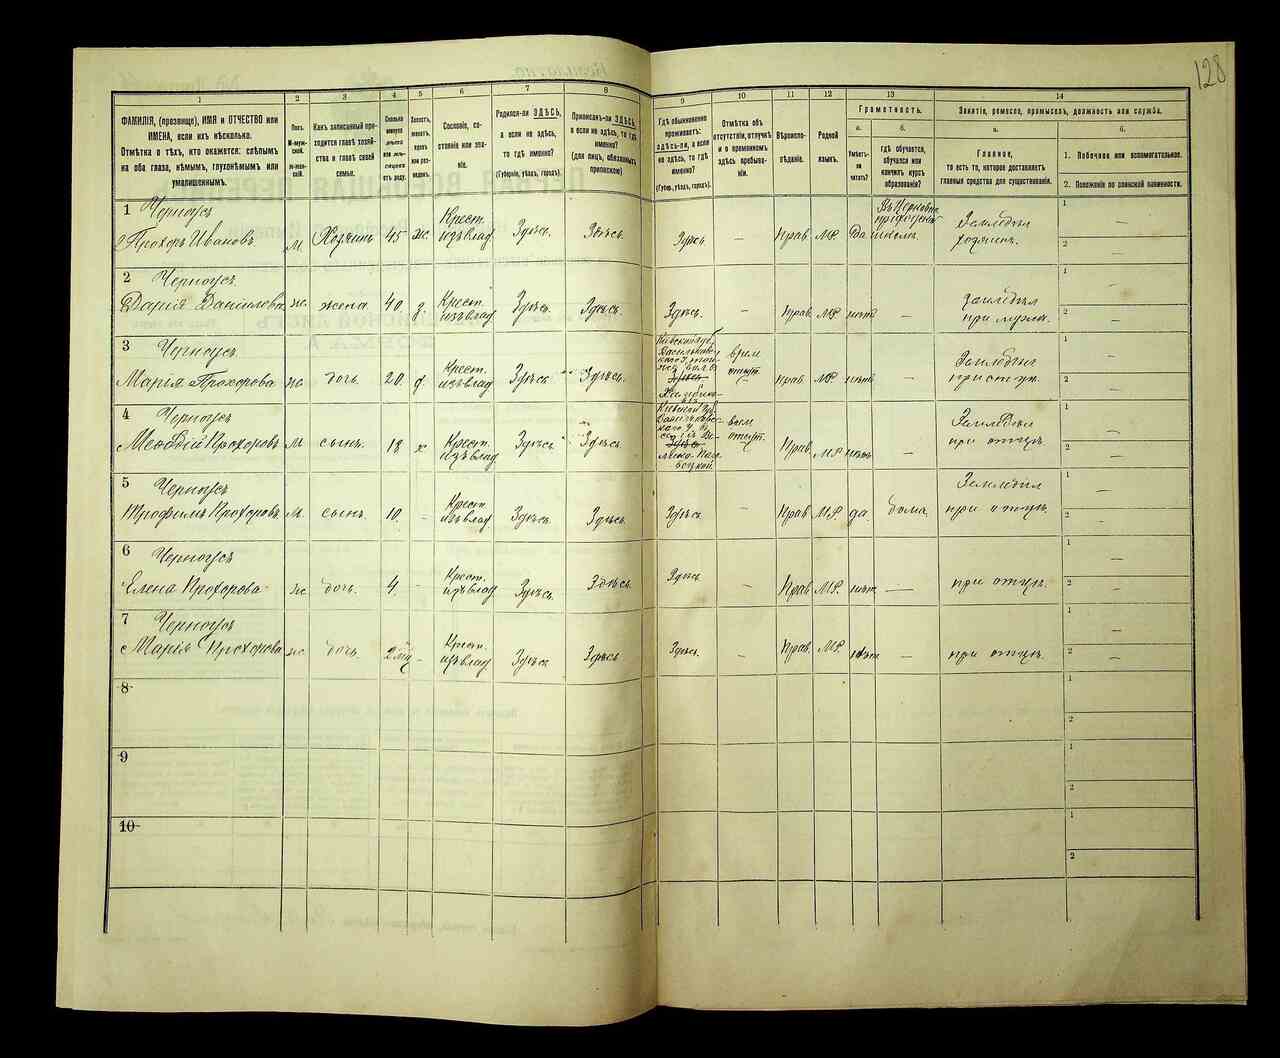 128
1
2
3
4
5
6
7
8
9
10
11
12
13
14
ФАМИЛІЯ, (прозвище), ИМЯ и ОТЧЕСТВО или
ИМЕНА, если ихъ нѣсколько.
Отмѣтка о тѣхъ, кто окажется: слѣпымъ
на оба глаза, нѣмымъ, глухонѣмымъ или
умалишеннымъ.
Полъ.
М-муж-
ской.
Ж-жен-
скій.
Какъ записанный при-
ходится главѣ хозяй-
ства и главѣ своей
семьи.
Сколько
минуло
лѣтъ
или мѣ-
сяцевъ
отъ роду.
Холостъ,
женатъ,
вдовъ
или раз-
веденъ.
Сословіе, со-
стояніе или зва-
ніе.
Родился-ли ЗДѢСЬ,
а если не здѣсь,
то гдѣ именно?
(Губернія, уѣздъ, городъ).
Приписанъ-ли ЗДѢСЬ,
а если не здѣсь, то гдѣ
именно?
(для лицъ, обязанныхъ
припискою)
Гдѣ обыкновенно
проживаетъ:
здѣсь-ли, а если
не здѣсь, то гдѣ
именно?
(Губер., уѣздъ, городъ).
Отмѣтка объ
отсутствіи, отлучкѣ
и о временномъ
здѣсь пребыва-
ніи.
Вѣроиспо-
вѣданіе.
Родной
языкъ.
Грамотность.
а.
б.
Умѣетъ-
ли
читать?
гдѣ обучается,
обучался или
кончилъ курсъ
образованія?
Занятіе, ремесло, промыселъ, должность или служба.
а.
б.
Главное,
то есть то, которое доставляетъ
главныя средства для существованія.
1. Побочное или вспомогательное.
2. Положеніе по воинской повинности.
1 Черноусъ
Прохоръ Ивановъ М. Хозяинъ 45 ж. Крест.
изъ влад. Здѣсь. Здѣсь. Здѣсь — Прав. МР. Да Въ Церковно
приходской
школѣ. Земледѣл
хозяинъ. 1 —
2 —
2 Черноусъ.
Дарія Данилева ж. жена 40. з. Крест.
изъ влад. Здѣсь. Здѣсь. Здѣсь. — Прав. МР нѣтъ — Земледѣл
при мужѣ. 1 —
2 —
3 Черноусъ.
Марія Прохорова ж. дочь 20. Крест.
изъ влад. Здѣсь Здѣсь. Здѣсь врем
отсут. Прав. МР нѣтъ — Земледѣл
при отцѣ. 1 —
2 —
4 Черноусъ
Прохоровъ М сынъ. 18 х Крест.
изъ влад. Здѣсь Здѣсь. Здѣсь врем
отсут. Прав. МР нѣтъ — Земледѣл
при отцѣ. 1 —
2 —
5 Черноусъ
Трофимъ Прохоровъ М. сынъ. 10. - Крест.
изъ влад. Здѣсь. Здѣсь. Здѣсь — Прав. МР. да дома. Земледѣл
при отцѣ. 1 —
2 —
6 Черноусъ
Елена Прохорова ж. дочь. 4. - Крест.
изъ влад. Здѣсь. Здѣсь. Здѣсь — Прав. МР. нѣтъ — при отцѣ. 1 —
2 —
7 Черноусъ
Марія Прохорова ж. дочь. - Крест.
изъ влад. Здѣсь Здѣсь Здѣсь. — Прав. МР. нѣтъ — при отцѣ. 1 —
2 —
8 1
2
9 1
2
10 1
2